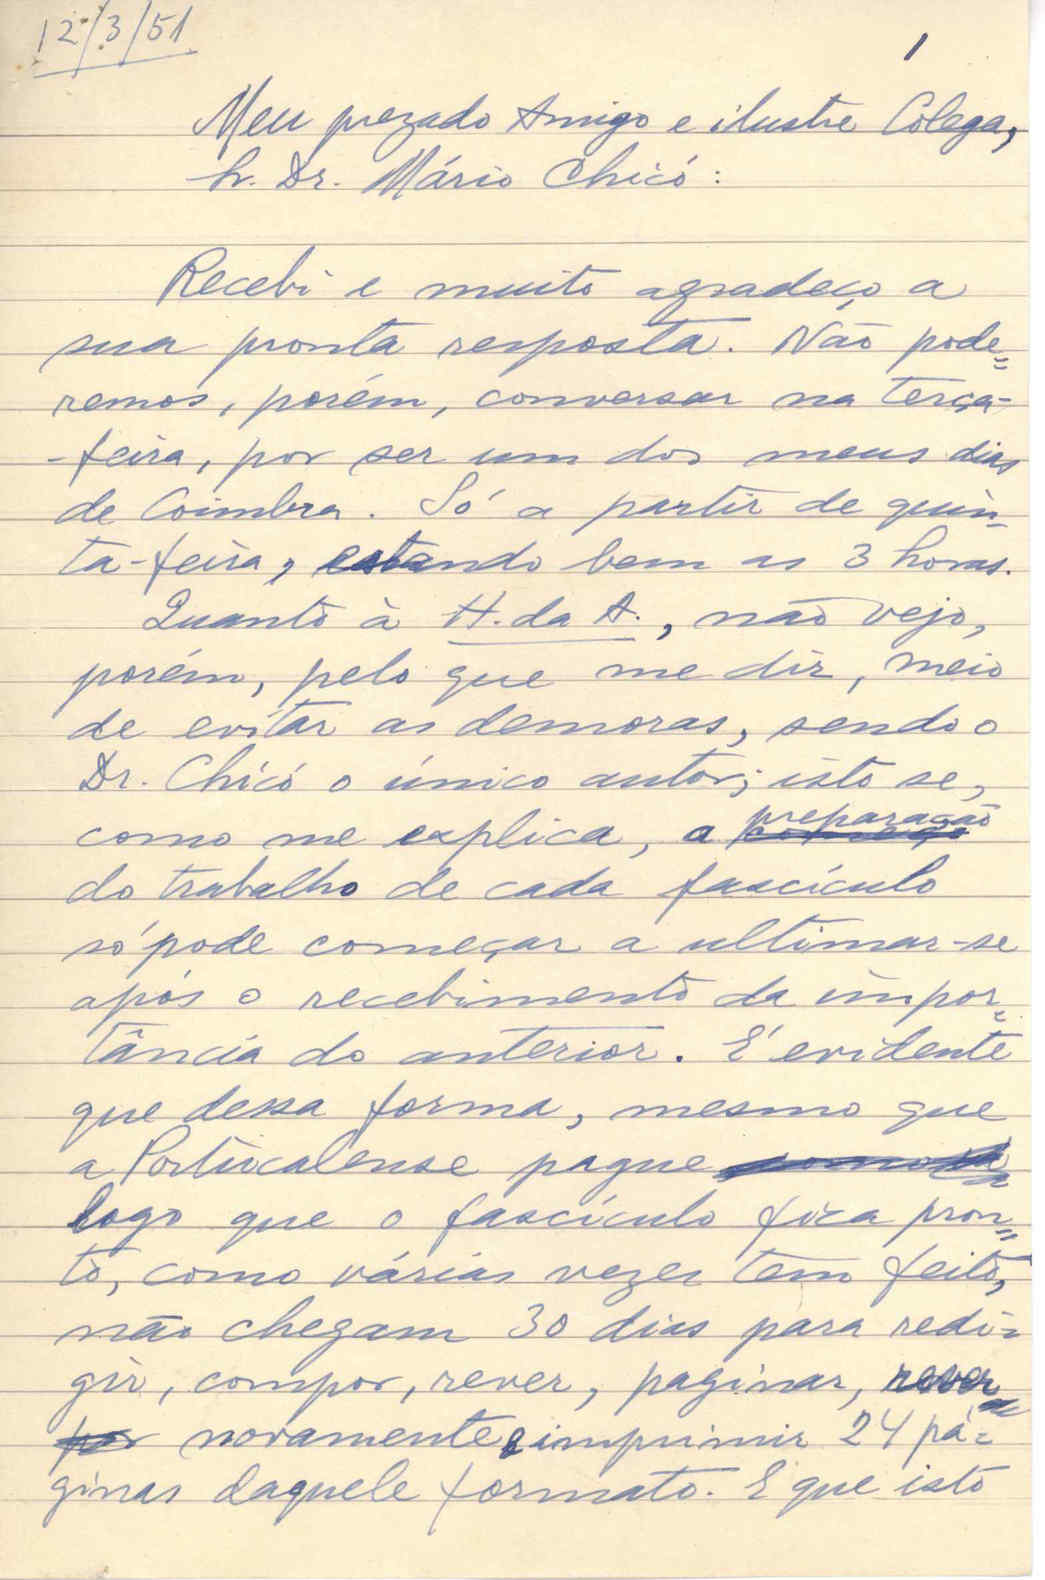 12/3/51
1
Meu prezado Amigo e ilustre Colega,
Sr. Dr. Mário Chicó:
Recebi e muito agradeço a
sua pronta resposta. Não pode=
remos, porém, conversar na terça-
-feira, por ser um dos meus dias
de Coimbra. Só a partir de quin-
ta-feira, estando bem as 3 horas.
Quanto à H. da A., não vejo,
porém, pelo que me diz, meio
de evitar as demoras, sendo o
Dr. Chicó o único autor; isto se,
como me explica, a preparação
do trabalho de cada fascículo
só pode começar a ultimar-se
após o recebimento da impor=
tância do anterior. É evidente
que dessa forma, mesmo que
a Portucalense pague
logo que o fascículo fica pron=
to, como várias vezes tem feito,
não chegam 30 dias para redi=
gir, compor, rever, paginar, rever
novamente e imprimir 24 pá=
ginas daquele formato. E que isto